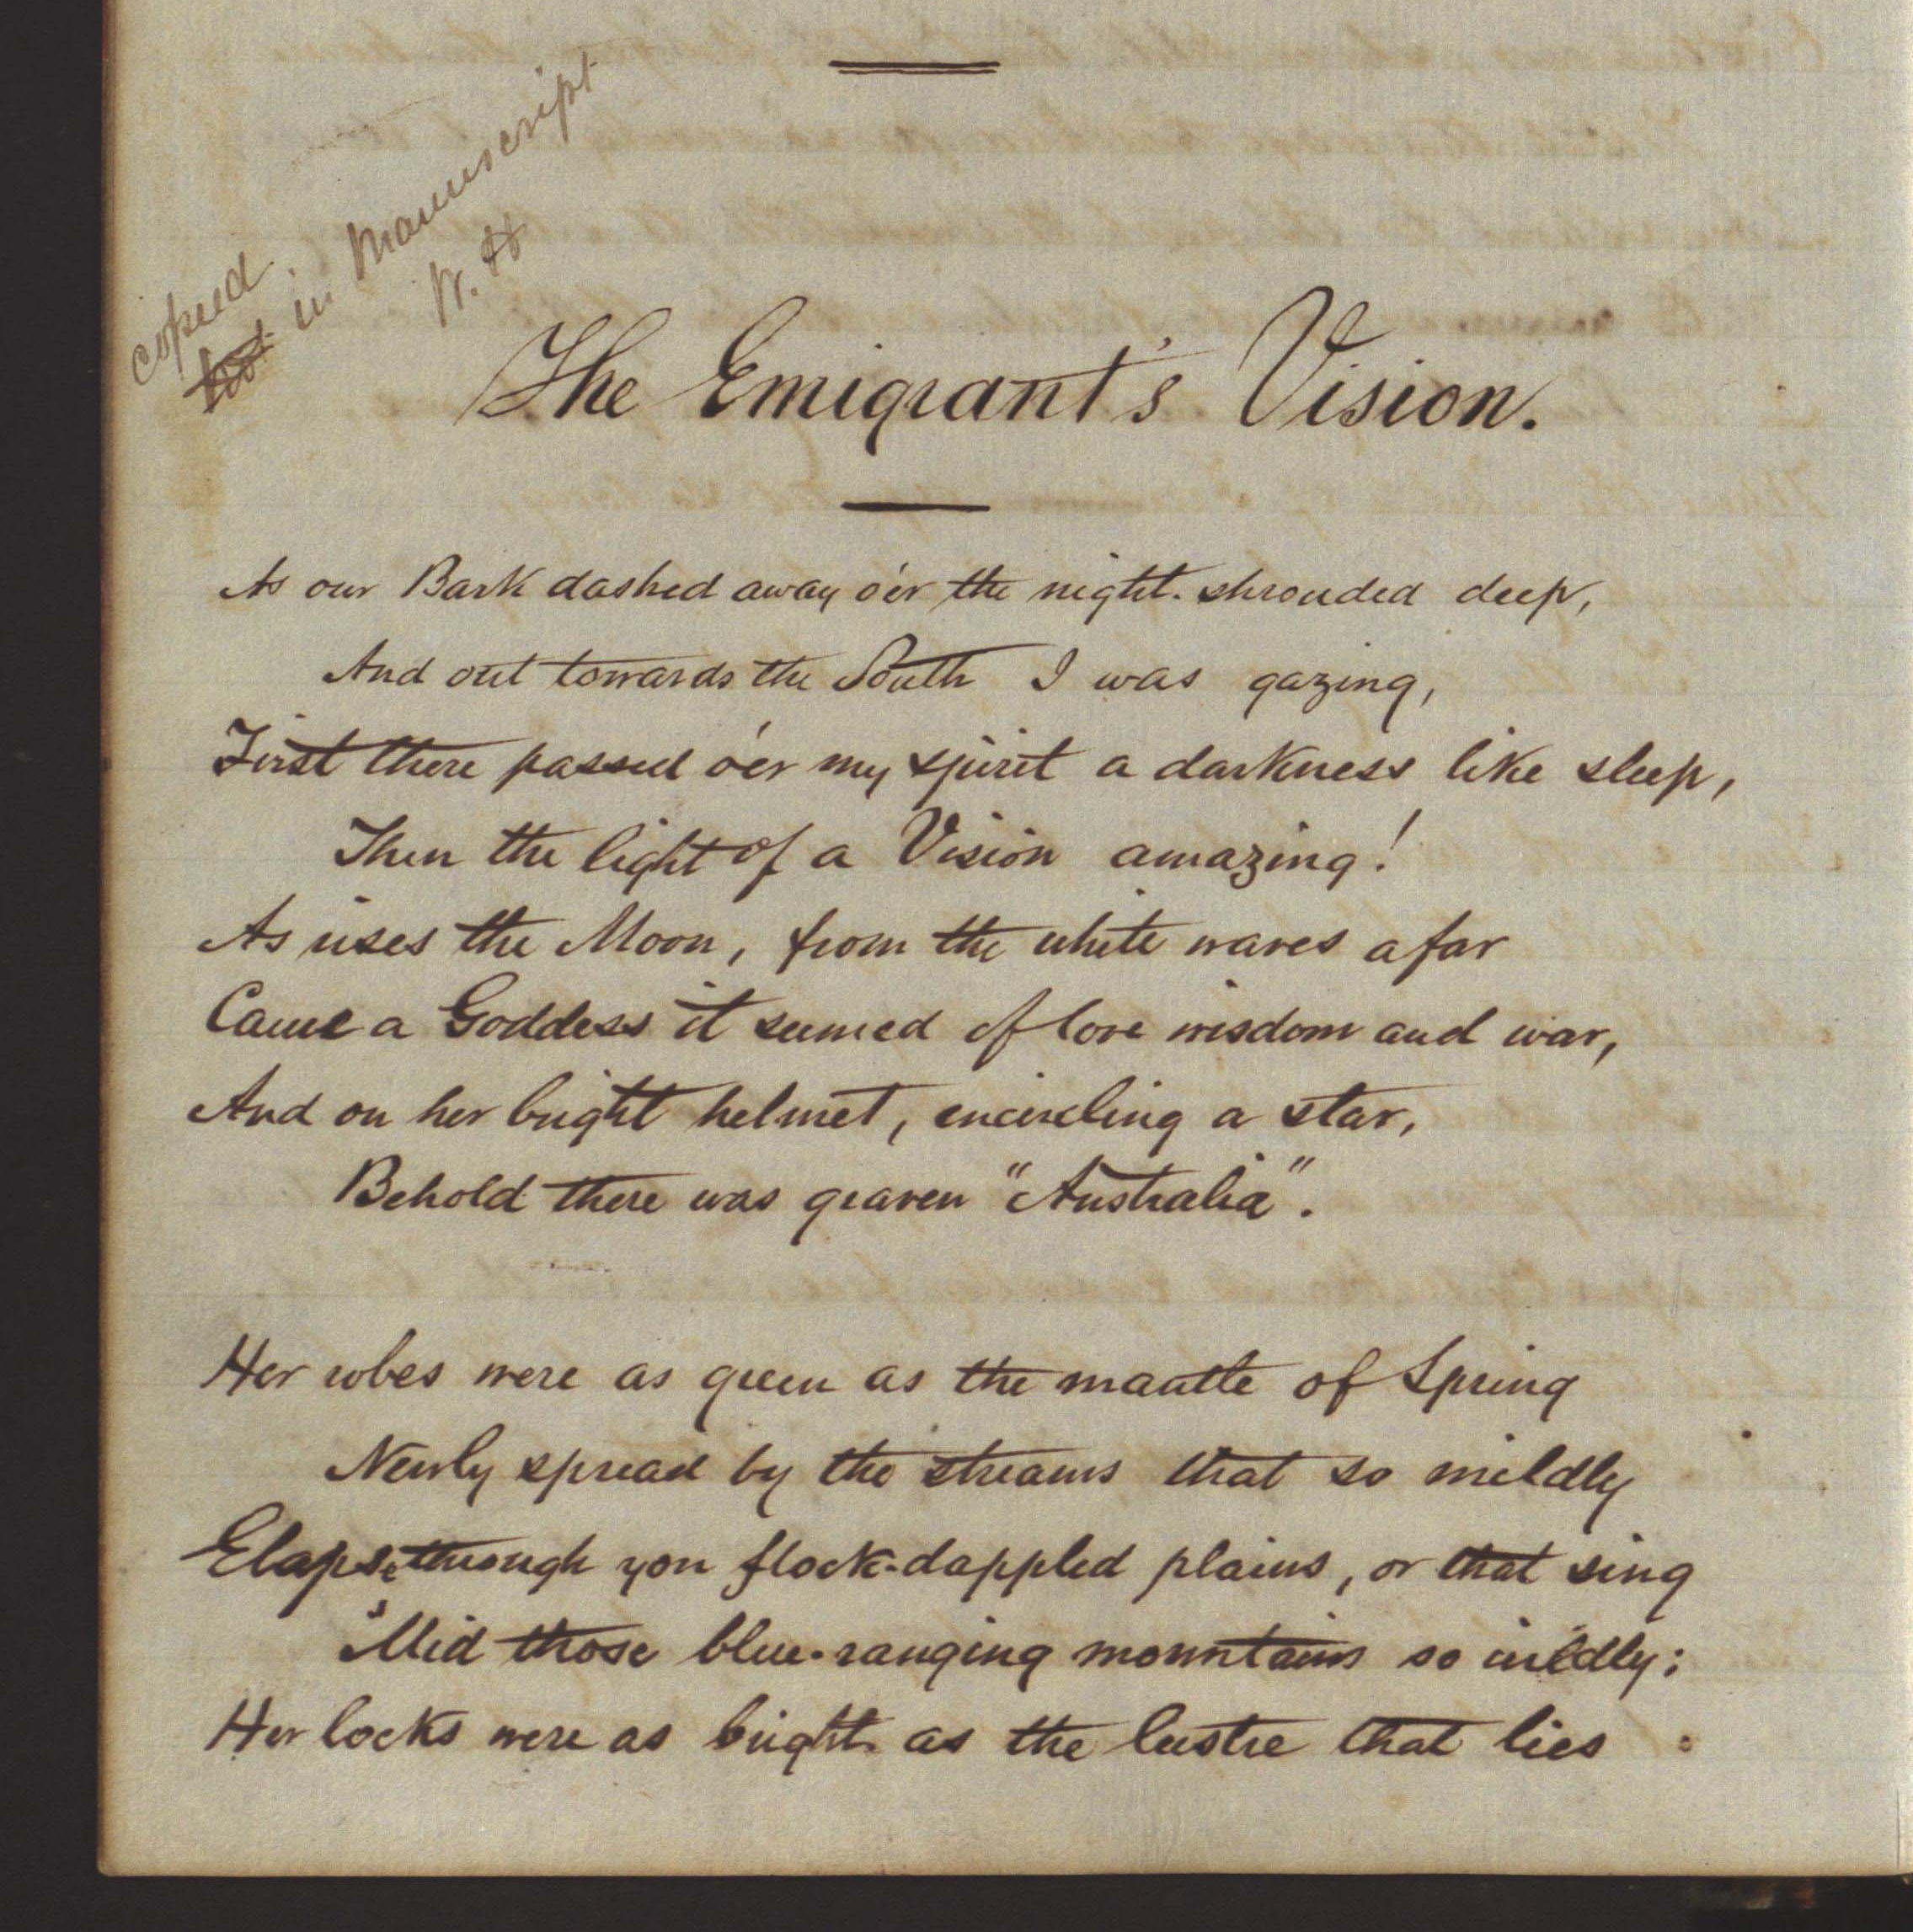 copied
not in Manuscript
W. H
The Emigrant's Vision.
As our Bark dashed away o'er the night-shrouded deep,
And out towards the South I was gazing,
First there passed o'er my spirit a darkness like sleep,
Then the light of a Vision amazing!
As rises the Moon, from the white waves afar
Came a Goddess it seemed of love wisdom and war,
And on her bright helmet, encircling a star,
Behold there was graven "Australia".
Her robes were as green as the mantle of Spring
Newly spread by the streams that so mildly
Elapse through yon flock-dappled plains, or that sing
'Mid those blue-ranging mountains so wildly;
Her locks were as bright as the lustre that lies